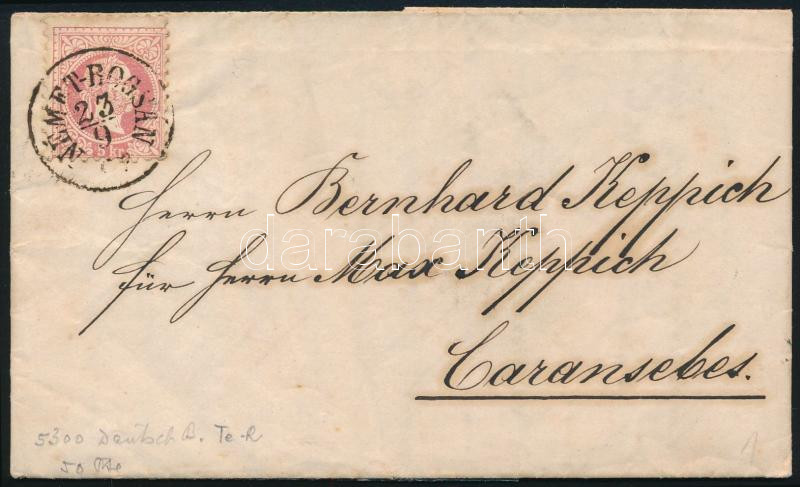 NÉMET-BOGSÁN
23
9
5 kr
Herrn Bernhard Keppich
für Herrn Max Keppich
Caransebes.
darabanth
5300 Deutsch B. Te-R
50
1